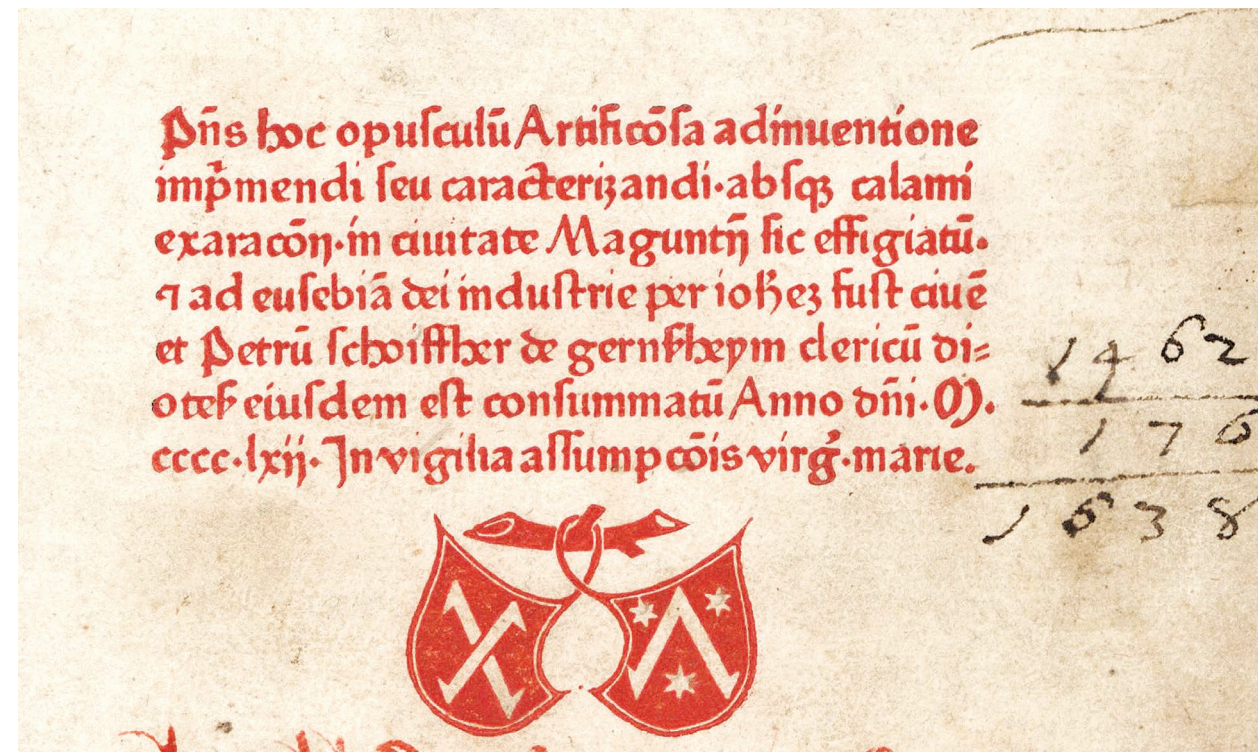 Pn̄s hoc opuſculū Artificōſa adinuentione
imp̄mendi ſeu caracterizandi·abſqꝫ calami
exaracōn·in ciuitate Maguntij ſic effigiatū·
⁊ ad euſebiā dei induſtrie per ioh̄eꝫ fuſt ciuē
et Petrū ſchoiffher de gernſsheym clericū di⸗
oteꝭ eiuſdem eſt conſummatū Anno dn̄i·M·
cccc·lxii· In vigilia aſſumpcōis virḡ·marie.
1462
176
1638